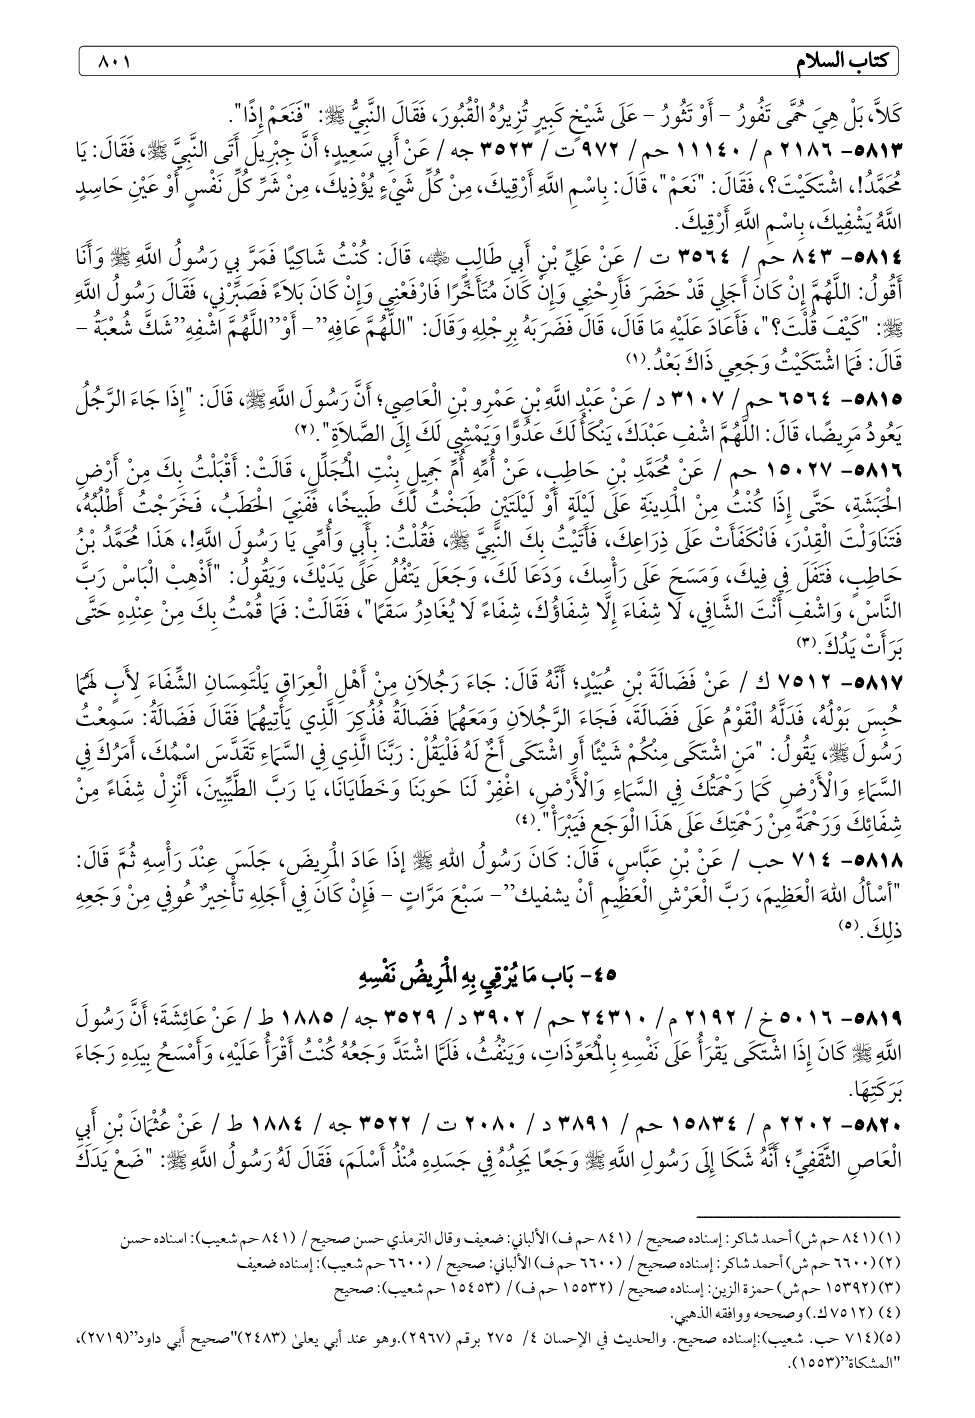 كتاب السلام ٨٠١
كَلاَّ، بَلْ هِيَ حُمَّى تَفُورُ – أَوْ تَثُورُ – عَلَى شَيْخٍ كَبِيرٍ تُزِيرُهُ الْقُبُورَ، فَقَالَ النَّبِيُّ ﷺ: "فَنَعَمْ إِذًا".
٥٨١٣- ٢١٨٦ م/ ١١١٤٠ حم/ ٩٧٢ ت/ ٣٥٢٣ جه/ عَنْ أَبِي سَعِيدٍ؛ أَنَّ جِبْرِيلَ أَتَى النَّبِيَّ ﷺ، فَقَالَ: يَا
مُحَمَّدُ!، اشْتَكَيْتَ؟، فَقَالَ: "نَعَمْ"، قَالَ: بِاسْمِ اللَّهِ أَرْقِيكَ، مِنْ كُلِّ شَيْءٍ يُؤْذِيكَ، مِنْ شَرِّ كُلِّ نَفْسٍ أَوْ عَيْنِ حَاسِدٍ
اللَّهُ يَشْفِيكَ، بِاسْمِ اللَّهِ أَرْقِيكَ.
٥٨١٤- ٨٤٣ حم/ ٣٥٦٤ ت/ عَنْ عَلِيِّ بْنِ أَبِي طَالِبٍ ﵁، قَالَ: كُنْتُ شَاكِيًا فَمَرَّ بِي رَسُولُ اللَّهِ ﷺ وَأَنَا
أَقُولُ: اللَّهُمَّ إِنْ كَانَ أَجَلِي قَدْ حَضَرَ فَأَرِحْنِي وَإِنْ كَانَ مُتَأَخِّرًا فَارْفَعْنِي وَإِنْ كَانَ بَلاَءً فَصَبِّرْنِي، فَقَالَ رَسُولُ اللَّهِ
ﷺ: "كَيْفَ قُلْتَ؟"، فَأَعَادَ عَلَيْهِ مَا قَالَ، قَالَ فَضَرَبَهُ بِرِجْلِهِ وَقَالَ: "اللَّهُمَّ عَافِهِ"– أَوْ"اللَّهُمَّ اشْفِهِ"شَكَّ شُعْبَةُ –
قَالَ: فَمَا اشْتَكَيْتُ وَجَعِي ذَاكَ بَعْدُ.(١)
٥٨١٥- ٦٥٦٤ حم/ ٣١٠٧ د/ عَنْ عَبْدِ اللَّهِ بْنِ عَمْرِو بْنِ الْعَاصِي؛ أَنَّ رَسُولَ اللَّهِ ﷺ، قَالَ: "إِذَا جَاءَ الرَّجُلُ
يَعُودُ مَرِيضًا، قَالَ: اللَّهُمَّ اشْفِ عَبْدَكَ، يَنْكَأُ لَكَ عَدُوًّا وَيَمْشِي لَكَ إِلَى الصَّلاَةِ".(٢)
٥٨١٦- ١٥٠٢٧ حم/ عَنْ مُحَمَّدِ بْنِ حَاطِبٍ، عَنْ أُمِّهِ أُمِّ جَمِيلٍ بِنْتِ الْمُجَلِّلِ، قَالَتْ: أَقْبَلْتُ بِكَ مِنْ أَرْضِ
الْحَبَشَةِ، حَتَّى إِذَا كُنْتُ مِنْ الْمَدِينَةِ عَلَى لَيْلَةٍ أَوْ لَيْلَتَيْنِ طَبَخْتُ لَكَ طَبِيخًا، فَفَنِيَ الْحَطَبُ، فَخَرَجْتُ أَطْلُبُهُ،
فَتَنَاوَلْتَ الْقِدْرَ، فَانْكَفَأَتْ عَلَى ذِرَاعِكَ، فَأَتَيْتُ بِكَ النَّبِيَّ ﷺ، فَقُلْتُ: بِأَبِي وَأُمِّي يَا رَسُولَ اللَّهِ!، هَذَا مُحَمَّدُ بْنُ
حَاطِبٍ، فَتَفَلَ فِي فِيكَ، وَمَسَحَ عَلَى رَأْسِكَ، وَدَعَا لَكَ، وَجَعَلَ يَتْفُلُ عَلَى يَدَيْكَ، وَيَقُولُ: "أَذْهِبْ الْبَاسْ رَبَّ
النَّاسْ، وَاشْفِ أَنْتَ الشَّافِي، لَا شِفَاءَ إِلَّا شِفَاؤُكَ، شِفَاءً لَا يُغَادِرُ سَقَمًا"، فَقَالَتْ: فَمَا قُمْتُ بِكَ مِنْ عِنْدِهِ حَتَّى
بَرَأَتْ يَدُكَ.(٣)
٥٨١٧- ٧٥١٢ ك/ عَنْ فَضَالَةَ بْنِ عُبَيْدٍ؛ أَنَّهُ قَالَ: جَاءَ رَجُلاَنِ مِنْ أَهْلِ الْعِرَاقِ يَلْتَمِسَانِ الشِّفَاءَ لِأَبٍ لَهُمَا
حُبِسَ بَوْلُهُ، فَدَلَّهُ الْقَوْمُ عَلَى فَضَالَةَ، فَجَاءَ الرَّجُلاَنِ وَمَعَهُمَا فَضَالَةُ فُذُكِرَ الَّذِي يَأْتِيهُمَا فَقَالَ فَضَالَةُ: سَمِعْتُ
رَسُولَ ﷺ، يَقُولُ: "مَنِ اشْتَكَى مِنْكُمْ شَيْئًا أَوِ اشْتَكَى أَخٌ لَهُ فَلْيَقُلْ: رَبَّنَا الَّذِي فِي السَّمَاءِ تَقَدَّسَ اسْمُكَ، أَمْرُكَ فِي
السَّمَاءِ وَالْأَرْضِ كَمَا رَحْمَتُكَ فِي السَّمَاءِ وَالْأَرْضِ، اغْفِرْ لَنَا حَوبَنَا وَخَطَايَانَا، يَا رَبَّ الطَّيِّبِينَ، أَنْزِلْ شِفَاءً مِنْ
شِفَائِكَ وَرَحْمَةً مِنْ رَحْمَتِكَ عَلَى هَذَا الْوَجَعِ فَيَبْرَأْ".(٤)
٥٨١٨- ٧١٤ حب/ عَنْ بْنِ عَبَّاسٍ، قَالَ: كَانَ رَسُولُ اللهِ ﷺ إذَا عَادَ الْمَرِيضَ، جَلَسَ عِنْدَ رَأْسِهِ ثُمَّ قَالَ:
"أَسْأَلُ اللهَ الْعَظِيمَ، رَبَّ الْعَرْشِ الْعَظِيمِ أنْ يشفيك"– سَبْعَ مَرَّاتٍ – فَإِنْ كَانَ فِي أَجَلِهِ تأْخِيرٌ عُوفِي مِنْ وَجَعِهِ
ذلِكَ.(٥)
٤٥- بَاب مَا يُرْقِي بِهِ الْمَرِيضُ نَفْسِهِ
٥٨١٩- ٥٠١٦ خ/ ٢١٩٢ م/ ٢٤٣١٠ حم/ ٣٩٠٢ د/ ٣٥٢٩ جه/ ١٨٨٥ ط/ عَنْ عَائِشَةَ؛ أَنَّ رَسُولَ
اللَّهِ ﷺ كَانَ إِذَا اشْتَكَى يَقْرَأُ عَلَى نَفْسِهِ بِالْمُعَوِّذَاتِ، وَيَنْفُثُ، فَلَمَّا اشْتَدَّ وَجَعُهُ كُنْتُ أَقْرَأُ عَلَيْهِ، وَأَمْسَحُ بِيَدِهِ رَجَاءَ
بَرَكَتِهَا.
٥٨٢٠- ٢٢٠٢ م/ ١٥٨٣٤ حم/ ٣٨٩١ د/ ٢٠٨٠ ت/ ٣٥٢٢ جه/ ١٨٨٤ ط/ عَنْ عُثْمَانَ بْنِ أَبِي
الْعَاصِ الثَّقَفِيِّ؛ أَنَّهُ شَكَا إِلَى رَسُولِ اللَّهِ ﷺ وَجَعًا يَجِدُهُ فِي جَسَدِهِ مُنْذُ أَسْلَمَ، فَقَالَ لَهُ رَسُولُ اللَّهِ ﷺ: "ضَعْ يَدَكَ
(١)(٨٤١ حم ش) أحمد شاكر: إسناده صحيح/ (٨٤١ حم ف) الألباني: ضعيف وقال الترمذي حسن صحيح/ (٨٤١ حم شعيب): اسناده حسن
(٢)(٦٦٠٠ حم ش) أحمد شاكر: إسناده صحيح/ (٦٦٠٠ حم ف) الألباني: صحيح/ (٦٦٠٠ حم شعيب): إسناده ضعيف
(٣)(١٥٣٩٢ حم ش) حمزة الزين: إسناده صحيح/ (١٥٥٣٢ حم ف)/ (١٥٤٥٣ حم شعيب): صحيح
(٤) (٧٥١٢ ك.) وصححه ووافقه الذهبي.
(٥)(٧١٤ حب. شعيب):إسناده صحيح. والحديث في الإحسان ٤/ ٢٧٥ برقم (٢٩٦٧).وهو عند أبي يعلى (٢٤٨٣)"صحيح أبي داود"(٢٧١٩)،
"المشكاة"(١٥٥٣).